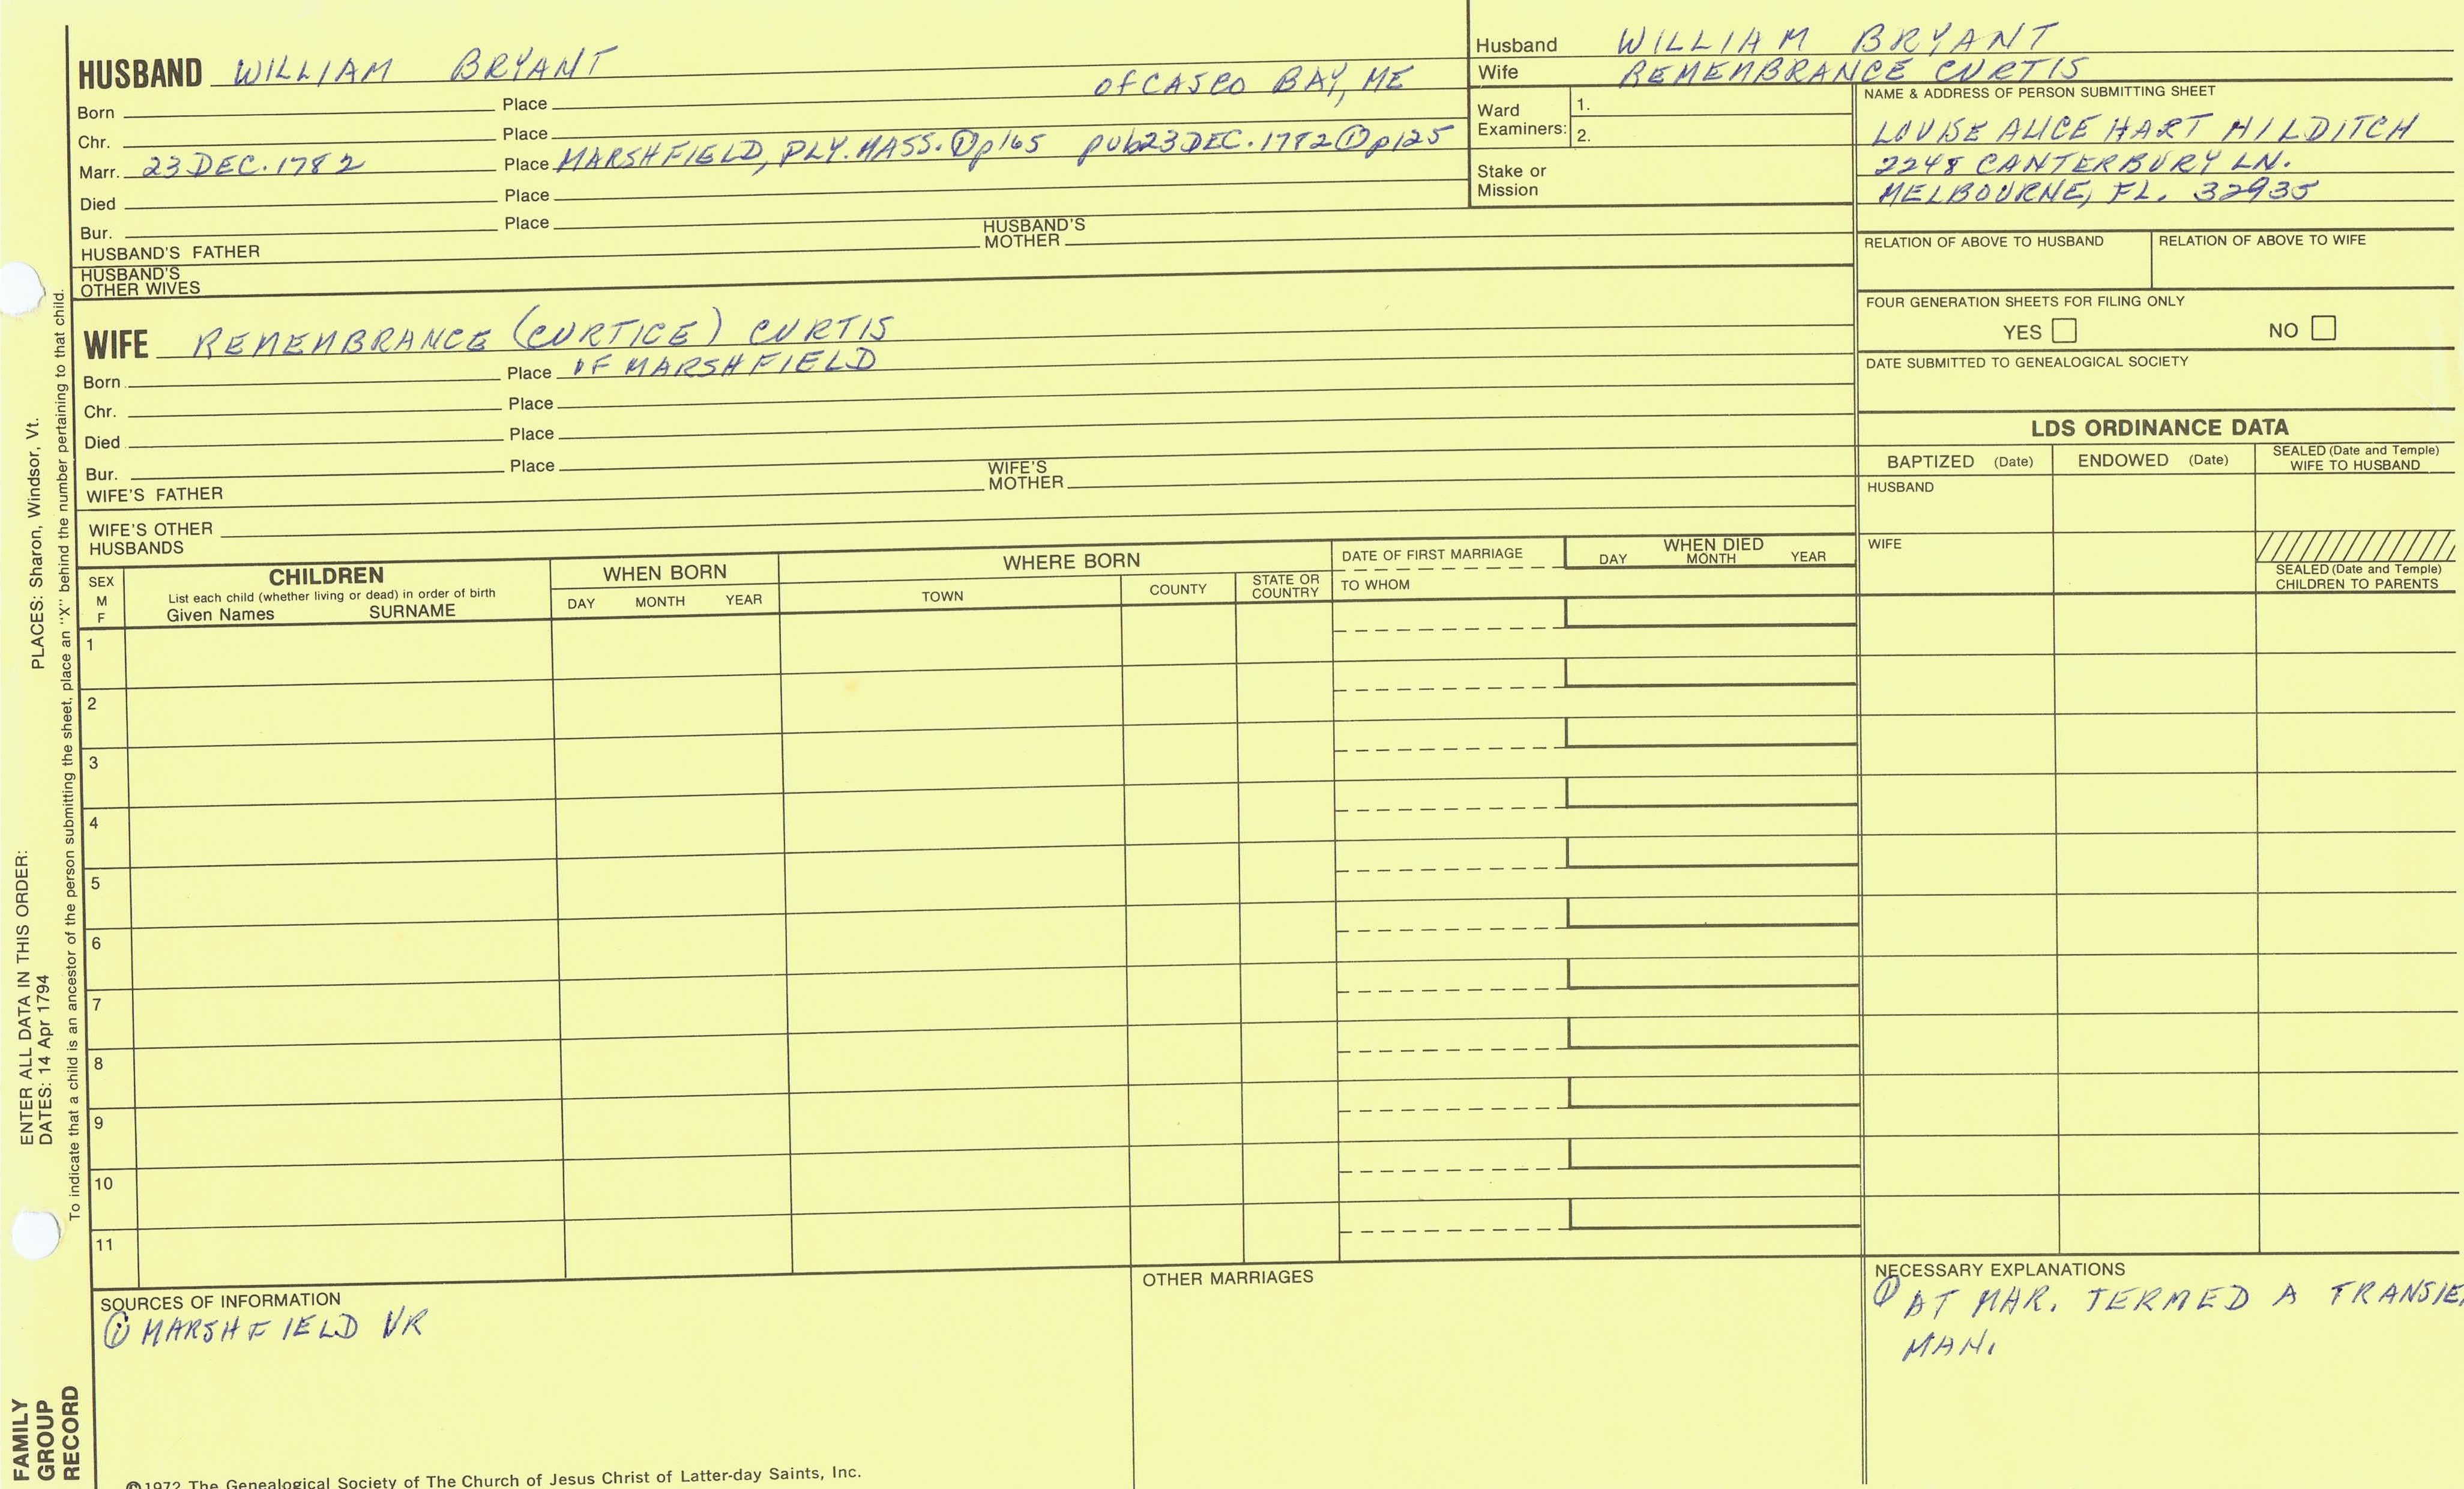 HUSBAND WILLIAM BRYANT
of CASCO BAY, ME
Born Place
Chr. Place
Marr. 23 DEC. 1782 Place MARSHFIELD, PLY. MASS. ① p165 pub 23 DEC. 1782 ① p125
Died Place
Bur. Place
HUSBAND'S FATHER HUSBAND'S MOTHER
HUSBAND'S
OTHER WIVES
Husband WILLIAM BRYANT
Wife REMEMBRANCE CURTIS
Ward
Examiners:
1.
2.
Stake or
Mission
NAME & ADDRESS OF PERSON SUBMITTING SHEET
LOUISE ALICE HART HILDITCH
2248 CANTERBURY LN.
MELBOURNE, FL. 32935
RELATION OF ABOVE TO HUSBAND RELATION OF ABOVE TO WIFE
FOUR GENERATION SHEETS FOR FILING ONLY
YES NO
DATE SUBMITTED TO GENEALOGICAL SOCIETY
WIFE REMEMBRANCE (CURTICE) CURTIS
Born Place OF MARSHFIELD
Chr. Place
Died Place
Bur. Place
WIFE'S FATHER WIFE'S MOTHER
WIFE'S OTHER
HUSBANDS
LDS ORDINANCE DATA
BAPTIZED (Date) ENDOWED (Date) SEALED (Date and Temple)
WIFE TO HUSBAND
HUSBAND
WIFE
SEALED (Date and Temple)
CHILDREN TO PARENTS
SEX
M
F
CHILDREN
List each child (whether living or dead) in order of birth
Given Names SURNAME
WHEN BORN
DAY MONTH YEAR
WHERE BORN
TOWN COUNTY STATE OR COUNTRY
DATE OF FIRST MARRIAGE
TO WHOM
WHEN DIED
DAY MONTH YEAR
1
2
3
4
5
6
7
8
9
10
11
SOURCES OF INFORMATION
① MARSHFIELD VR
OTHER MARRIAGES
NECESSARY EXPLANATIONS
① AT MAR. TERMED A TRANSIE
MAN.
©1972 The Genealogical Society of The Church of Jesus Christ of Latter-day Saints, Inc.
FAMILY
GROUP
RECORD
ENTER ALL DATA IN THIS ORDER:
DATES: 14 Apr 1794
PLACES: Sharon, Windsor, Vt.
To indicate that a child is an ancestor of the person submitting the sheet, place an "X" behind the number pertaining to that child.